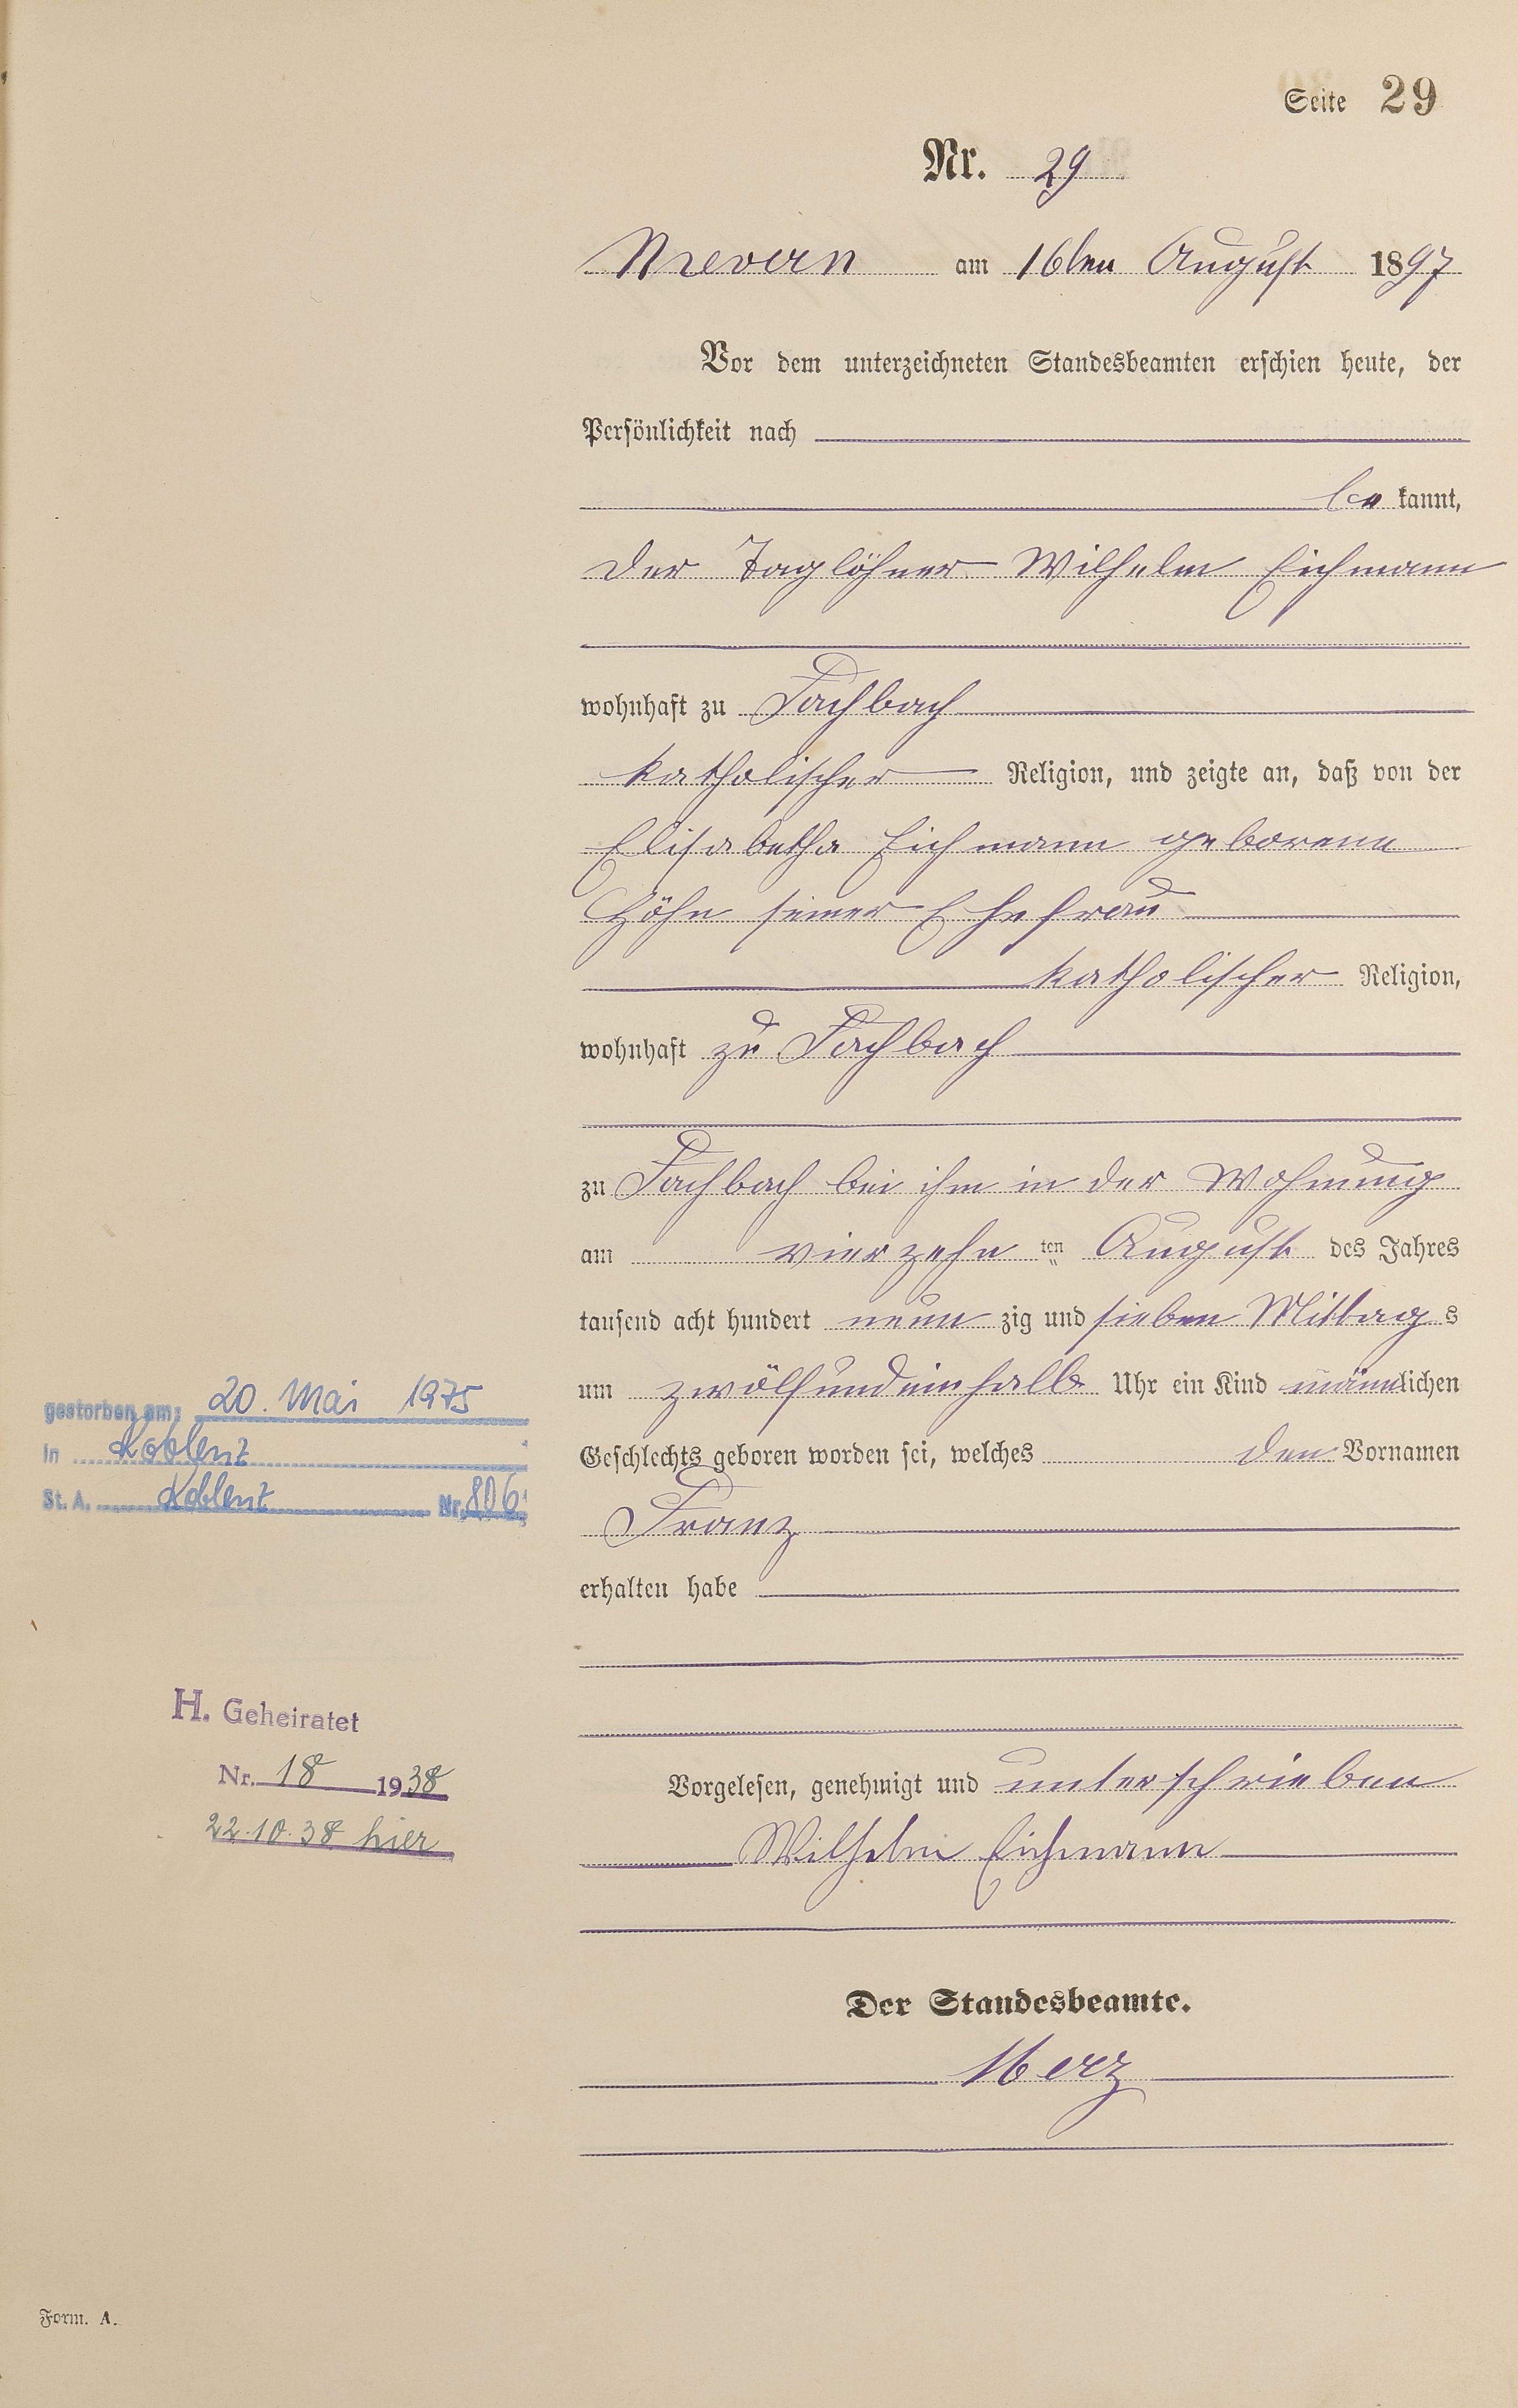 Seite 29
Nr. 29
Nievern am 16ten August 1897
Vor dem unterzeichneten Standesbeamten erschien heute, der
Persönlichkeit nach
be kannt,
der Taglöhner Wilhelm Eichmann
wohnhaft zu Fachbach
katholischer Religion, und zeigte an, daß von der
Elisabetha Eichmann geborene
Höhn seiner Ehefrau
katholischer Religion,
wohnhaft zu Fachbach
zu Fachbach bei ihm in der Wohnung
am vierzehn ten August des Jahres
tausend acht hundert neun zig und sieben Mittag s
um zwölfundeinhalb Uhr ein Kind männlichen
Geschlechts geboren worden sei, welches den Vornamen
Franz
erhalten habe
Vorgelesen, genehmigt und unterschrieben
Wilhelm Eichmann
Der Standesbeamte.
Merz
gestorben am: 20. Mai 1975
in Koblenz
St. A. Koblenz Nr. 806
H. Geheiratet
Nr. 18 1938
22.10.38 hier
Form. A.